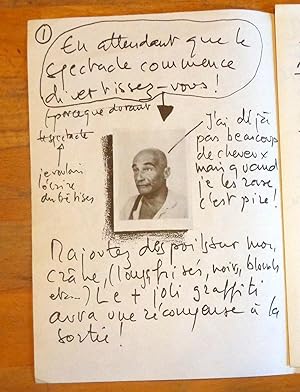 1
En attendant que le
spectacle commence
divertissez-vous!
(parceque durant
spectacle
je voulais
écrire
des bêtises
J'ai déjà
pas beaucoup
de cheveux
mais quand
je les rase
c'est pire!
Rajoutez des poils sur mon
crâne, (longs, frisés, noirs, blonds
etc...) Le + joli graffiti
aura une récompense à la
sortie!